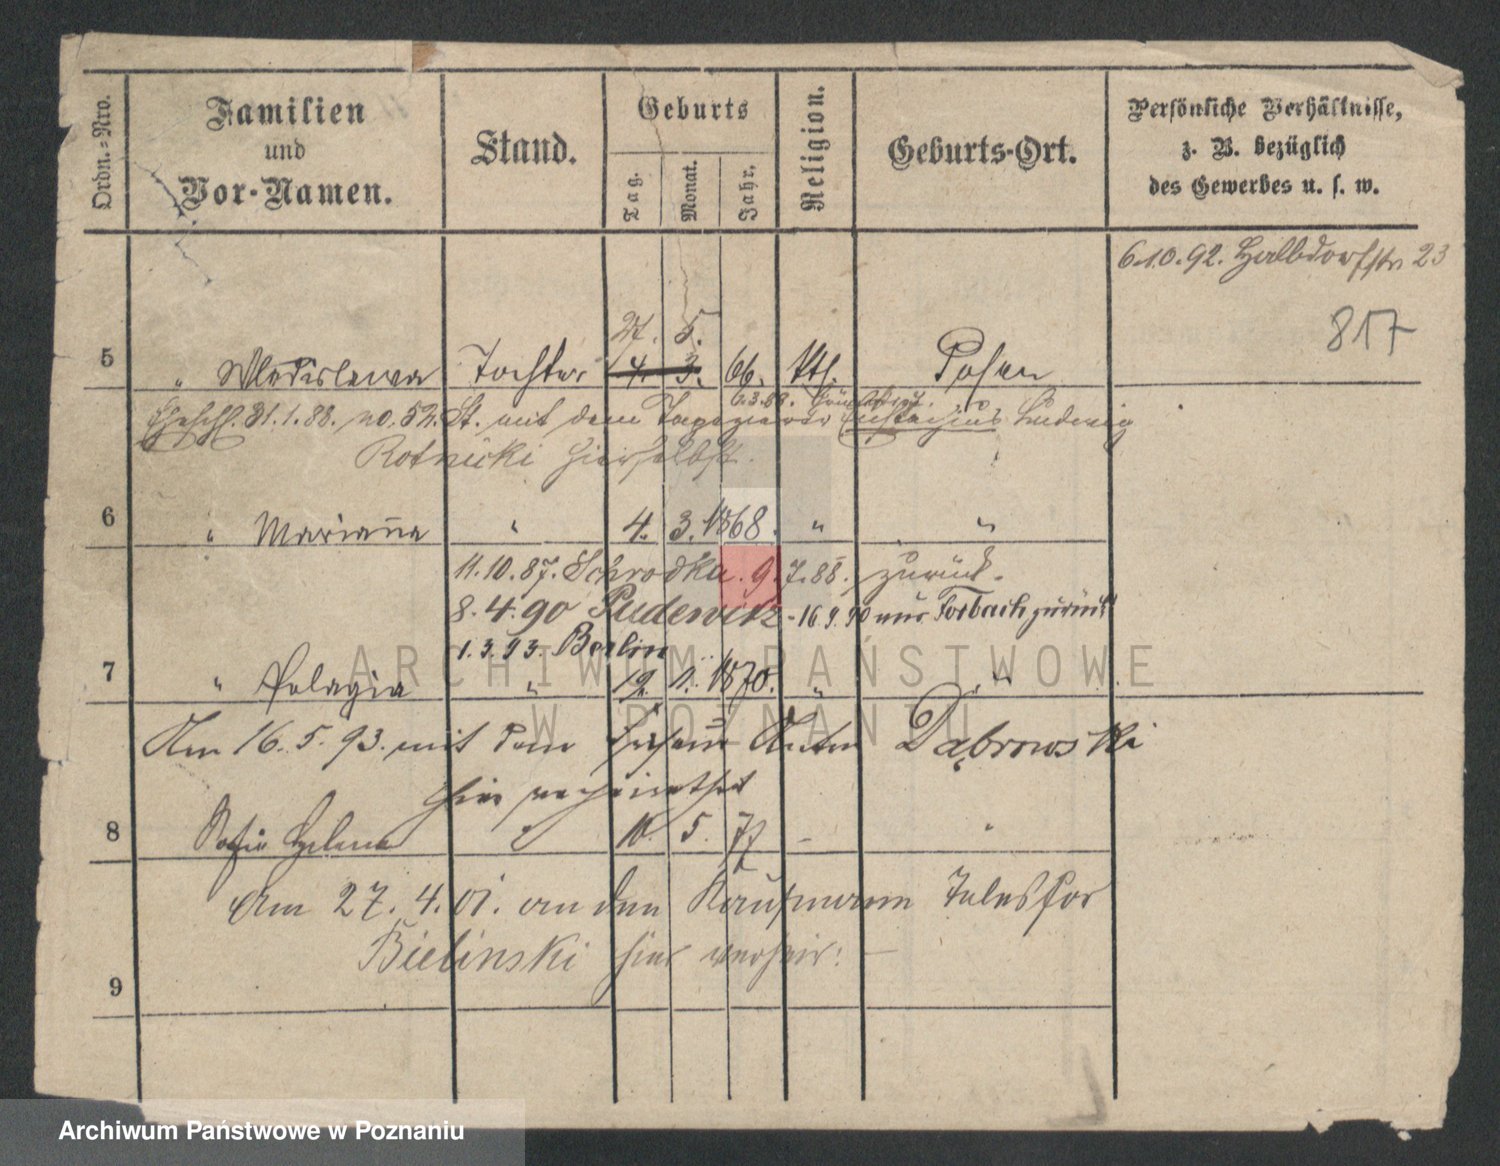 Ordn.=Nro.
Familien und Vor-Namen.
Stand.
Geburts
Tag.
Monat.
Jahr.
Religion.
Geburts-Ort.
Persönliche Verhältnisse,
z. B. bezüglich
des Gewerbes u. s. w.
6.10.92. Halbdorfstr 23
817
27. 5.
5 " Wladislawa Tochter 4. 3. 66. kth. Posen
6.3.88.
Eheschl. 31.1.88. no. 52. St. mit dem Tapezierer Eustachius Ludwig
Rotnicki hierselbst.
6 " Marianna " 4. 3. 1868. " "
11.10.87. Schrodka. 9.7.88. zurück.
8.4.90 Pudewitz - 16.9.90 aus Forbach zurück
1.3.93. Berlin
7 " Pelagia " 19. 1. 1870. " "
Am 16.5.93. mit dem Anton Dąbrowski
hier verheirathet
8 Sofie Helena " 10. 5. 77 - "
Am 27.4.01. an den Kaufmann Telesfor
Bielinski hier verheir: -
9
ARCHIWUM PAŃSTWOWE
W POZNANIU
Archiwum Państwowe w Poznaniu